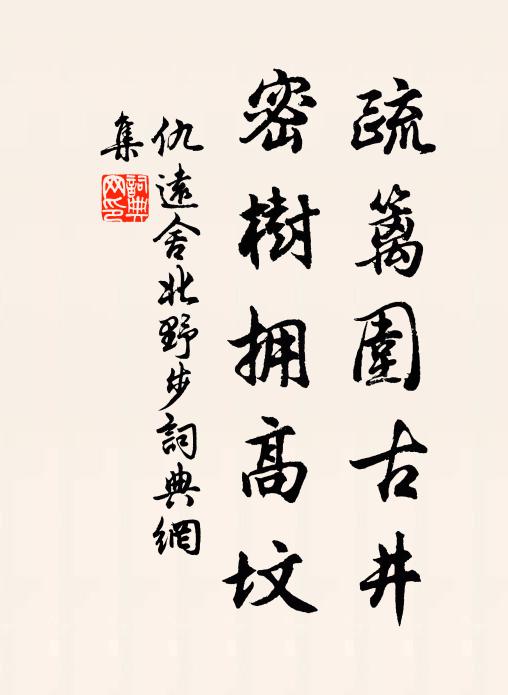 疏篱圍古井
密樹拥高坟
仇遠舍北野步詞典網
集
詞典
网印